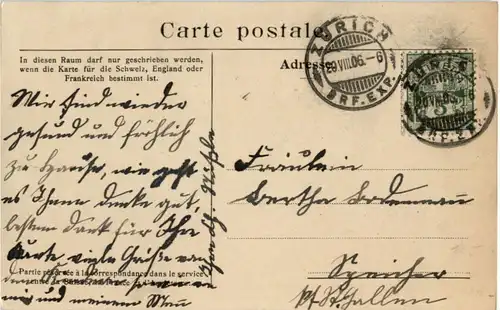 Carte postale
In diesen Raum darf nur geschrieben werden,
wenn die Karte für die Schweiz, England oder
Frankreich bestimmt ist.
Adresse
ZÜRICH
29 VIII.06.-6
BRF.EXP.
Wir sind wieder
gesund und fröhlich
zu Hause, wie geht
es Ihnen danke gut,
besten Dank für Ihre
Karte viele Grüße von
mir und meinem
Partie réservée à la correspondance dans le service
Fräulein
Bertha
Speicher
Kt. St. Gallen